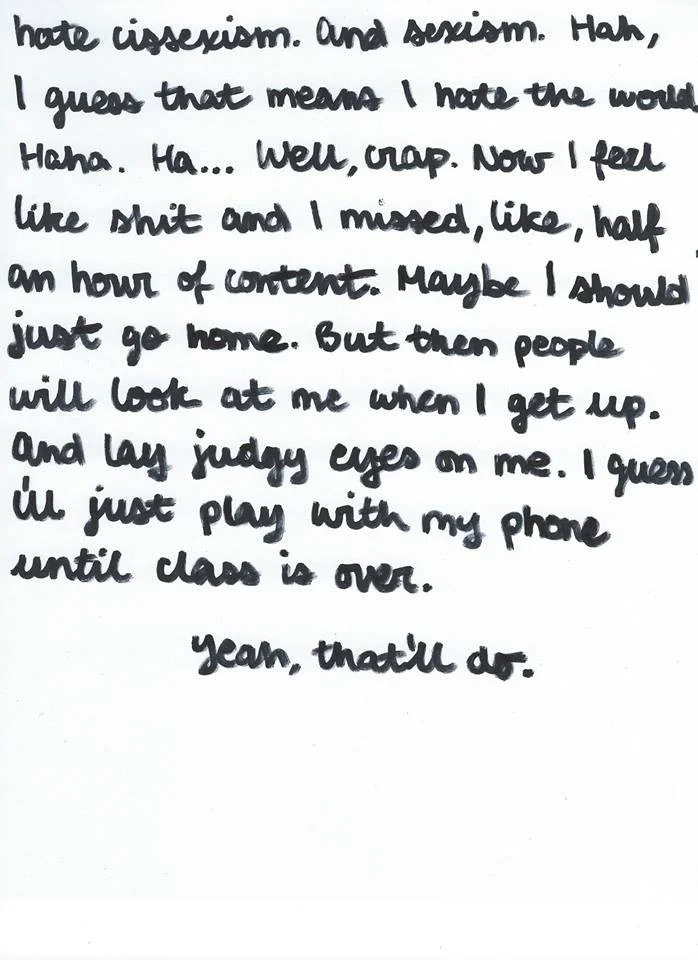 hate cissexism. And sexism. Hah,
I guess that means I hate the world.
Haha. Ha... Well, crap. Now I feel
like shit and I missed, like, half
an hour of content. Maybe I should
just go home. But then people
will look at me when I get up.
And lay judgy eyes on me. I guess
i'll just play with my phone
until class is over.
Yeah, that'll do.